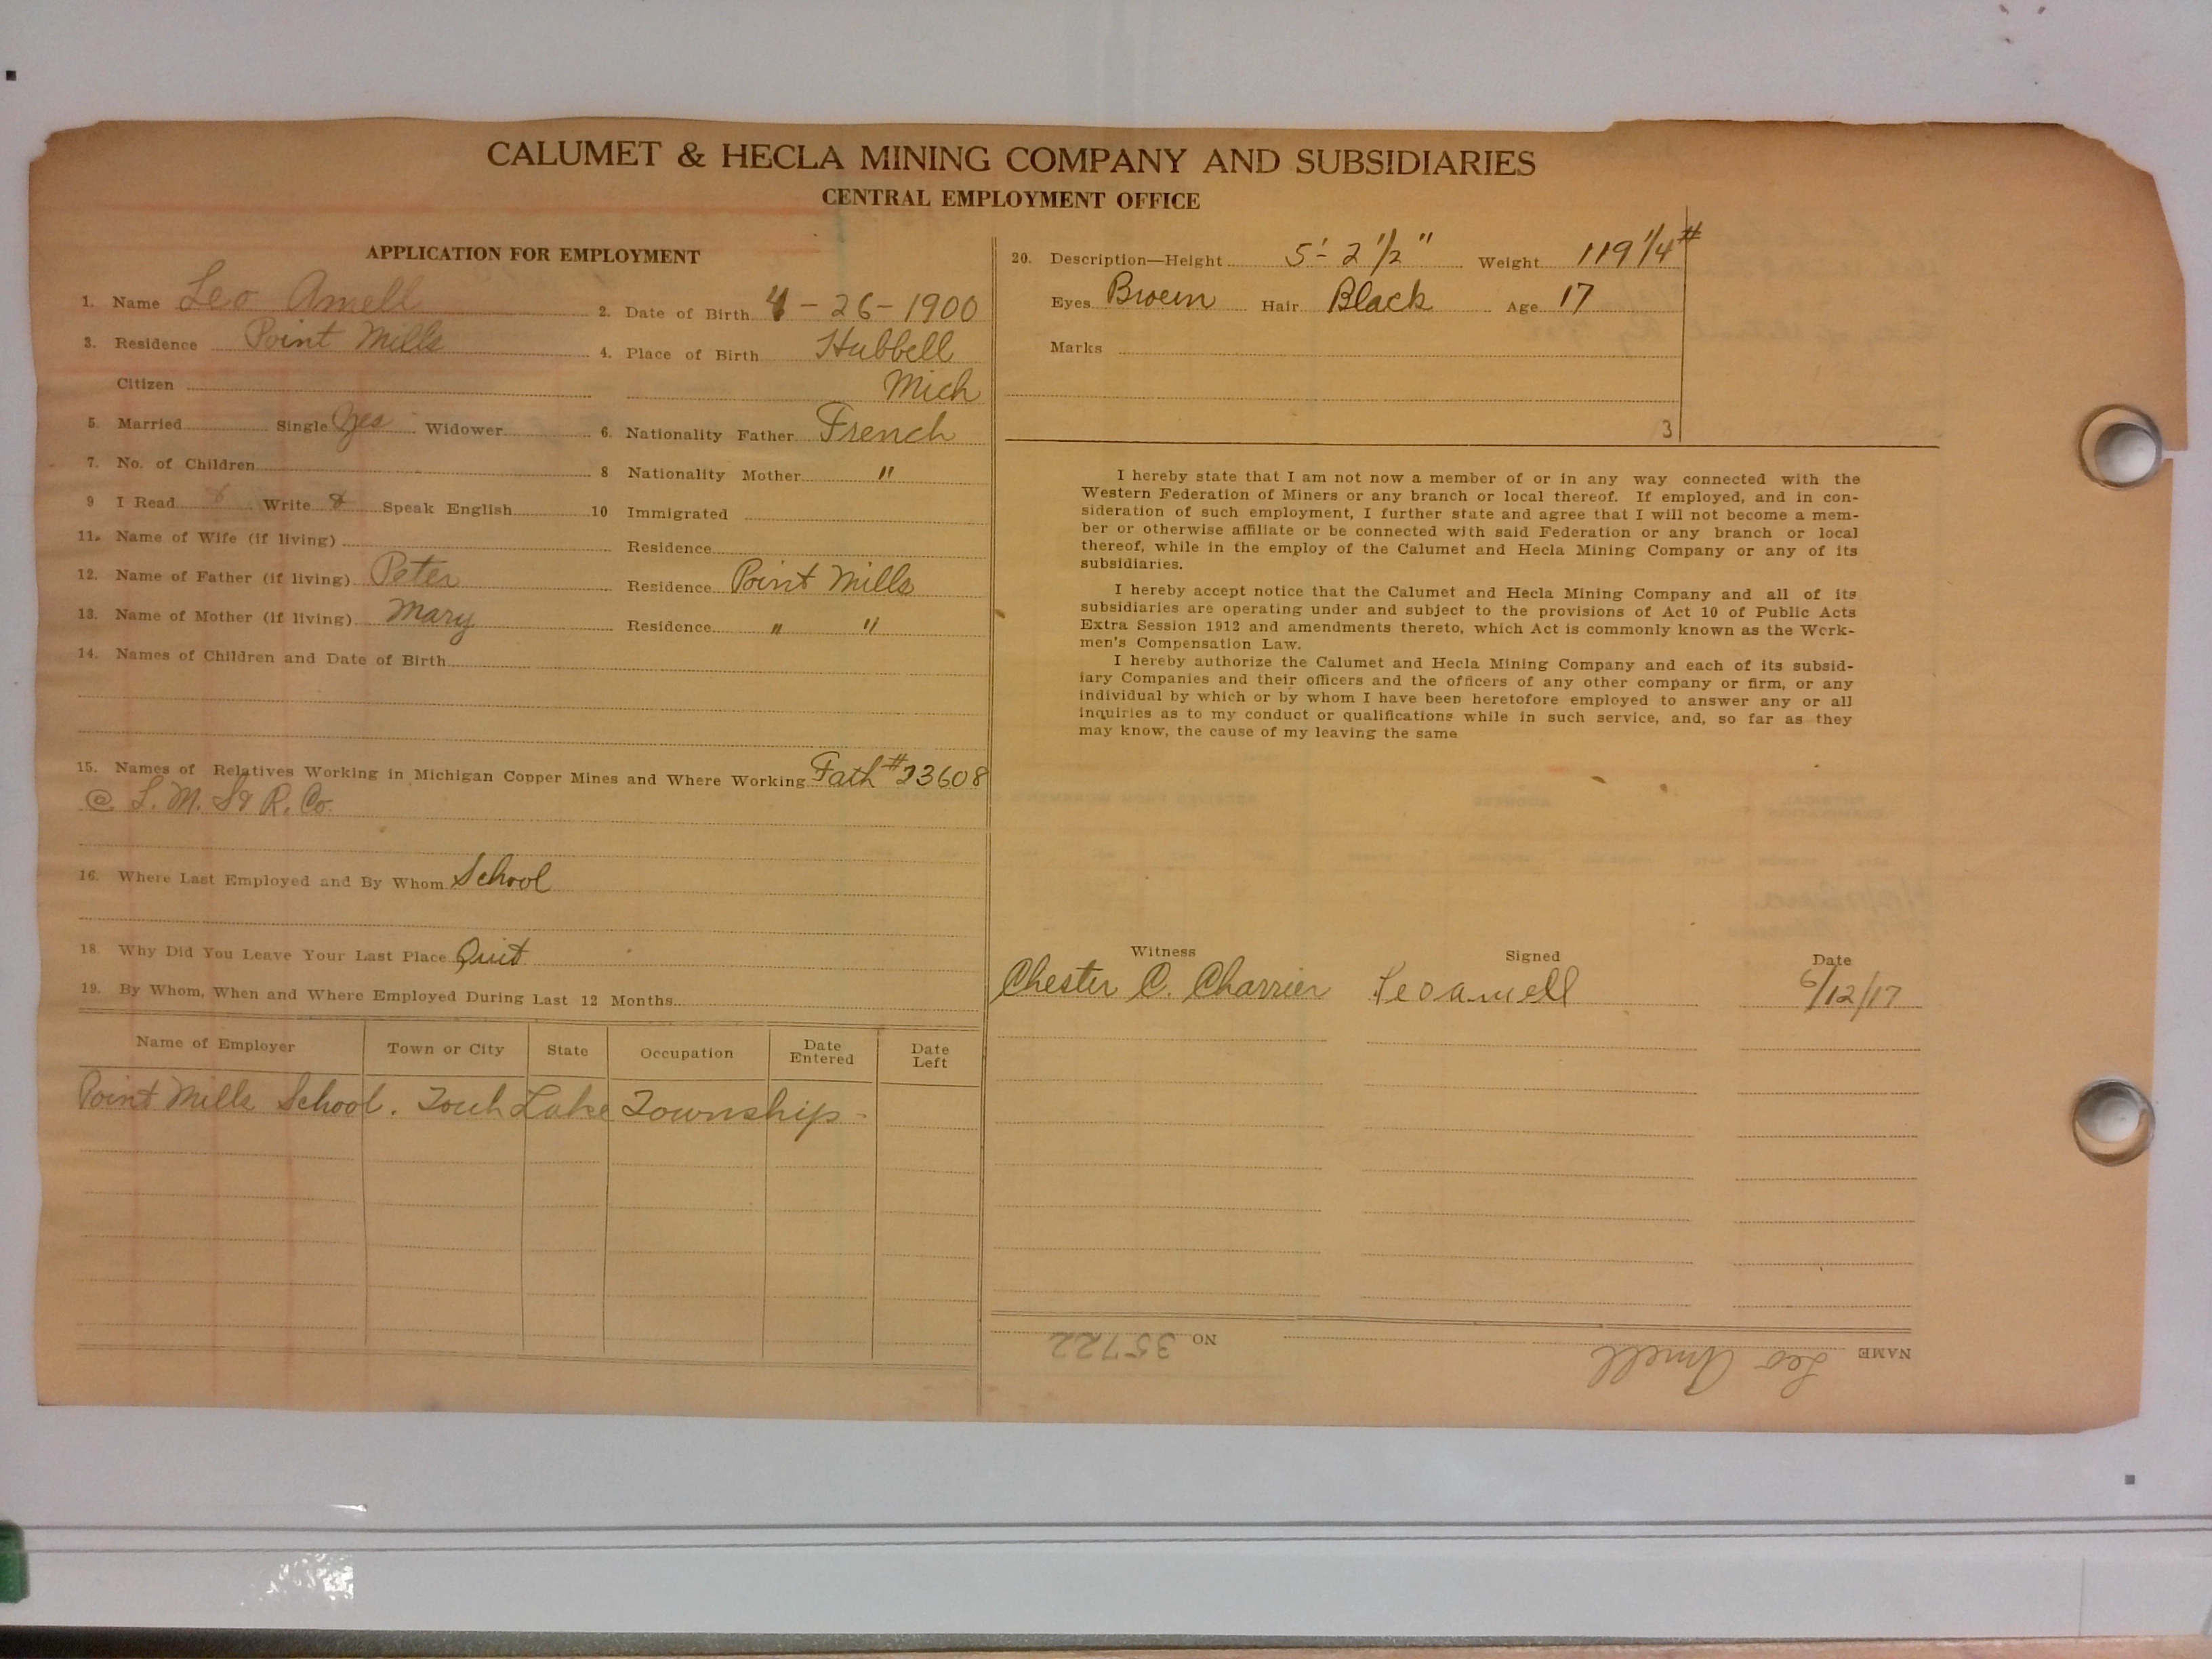 CALUMET & HECLA MINING COMPANY AND SUBSIDIARIES
CENTRAL EMPLOYMENT OFFICE
APPLICATION FOR EMPLOYMENT
1. Name Leo Amell 2. Date of Birth 4-26-1900
3. Residence Point Mills 4. Place of Birth Hubbell
Citizen Mich
5. Married Single Yes Widower 6. Nationality Father French
7. No. of Children 8 Nationality Mother "
9 I Read Write Speak English 10 Immigrated
11. Name of Wife (if living) Residence
12. Name of Father (if living) Peter Residence Point Mills
13. Name of Mother (if living) Mary Residence " "
14. Names of Children and Date of Birth
15. Names of Relatives Working in Michigan Copper Mines and Where Working Fath #23608
@ L. M. S & R. Co.
16. Where Last Employed and By Whom School
18. Why Did You Leave Your Last Place Quit
19. By Whom, When and Where Employed During Last 12 Months
Name of Employer Town or City State Occupation Date Entered Date Left
Point Mills School. Lake Township -
20. Description—Height 5'- 2 1/2" Weight 119 1/4 #
Eyes Brown Hair Black Age 17
Marks
3
I hereby state that I am not now a member of or in any way connected with the
Western Federation of Miners or any branch or local thereof. If employed, and in con-
sideration of such employment, I further state and agree that I will not become a mem-
ber or otherwise affiliate or be connected with said Federation or any branch or local
thereof, while in the employ of the Calumet and Hecla Mining Company or any of its
subsidiaries.
I hereby accept notice that the Calumet and Hecla Mining Company and all of its
subsidiaries are operating under and subject to the provisions of Act 10 of Public Acts
Extra Session 1912 and amendments thereto, which Act is commonly known as the Work-
men's Compensation Law.
I hereby authorize the Calumet and Hecla Mining Company and each of its subsid-
iary Companies and their officers and the officers of any other company or firm, or any
individual by which or by whom I have been heretofore employed to answer any or all
inquiries as to my conduct or qualifications while in such service, and, so far as they
may know, the cause of my leaving the same
Witness Signed Date
Chester C. Charrier Leo amell 6/12/17
NAME Leo Amell NO 35722